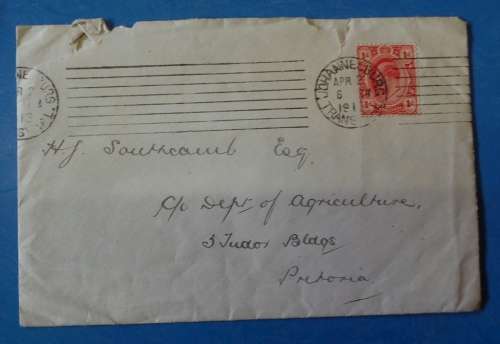 JOHANNESBURG
APR 2
6
191
TRANS
HJ. Southcomb Esq.
C/o Dept. of Agriculture,
3 Tudor Bldgs
Pretoria